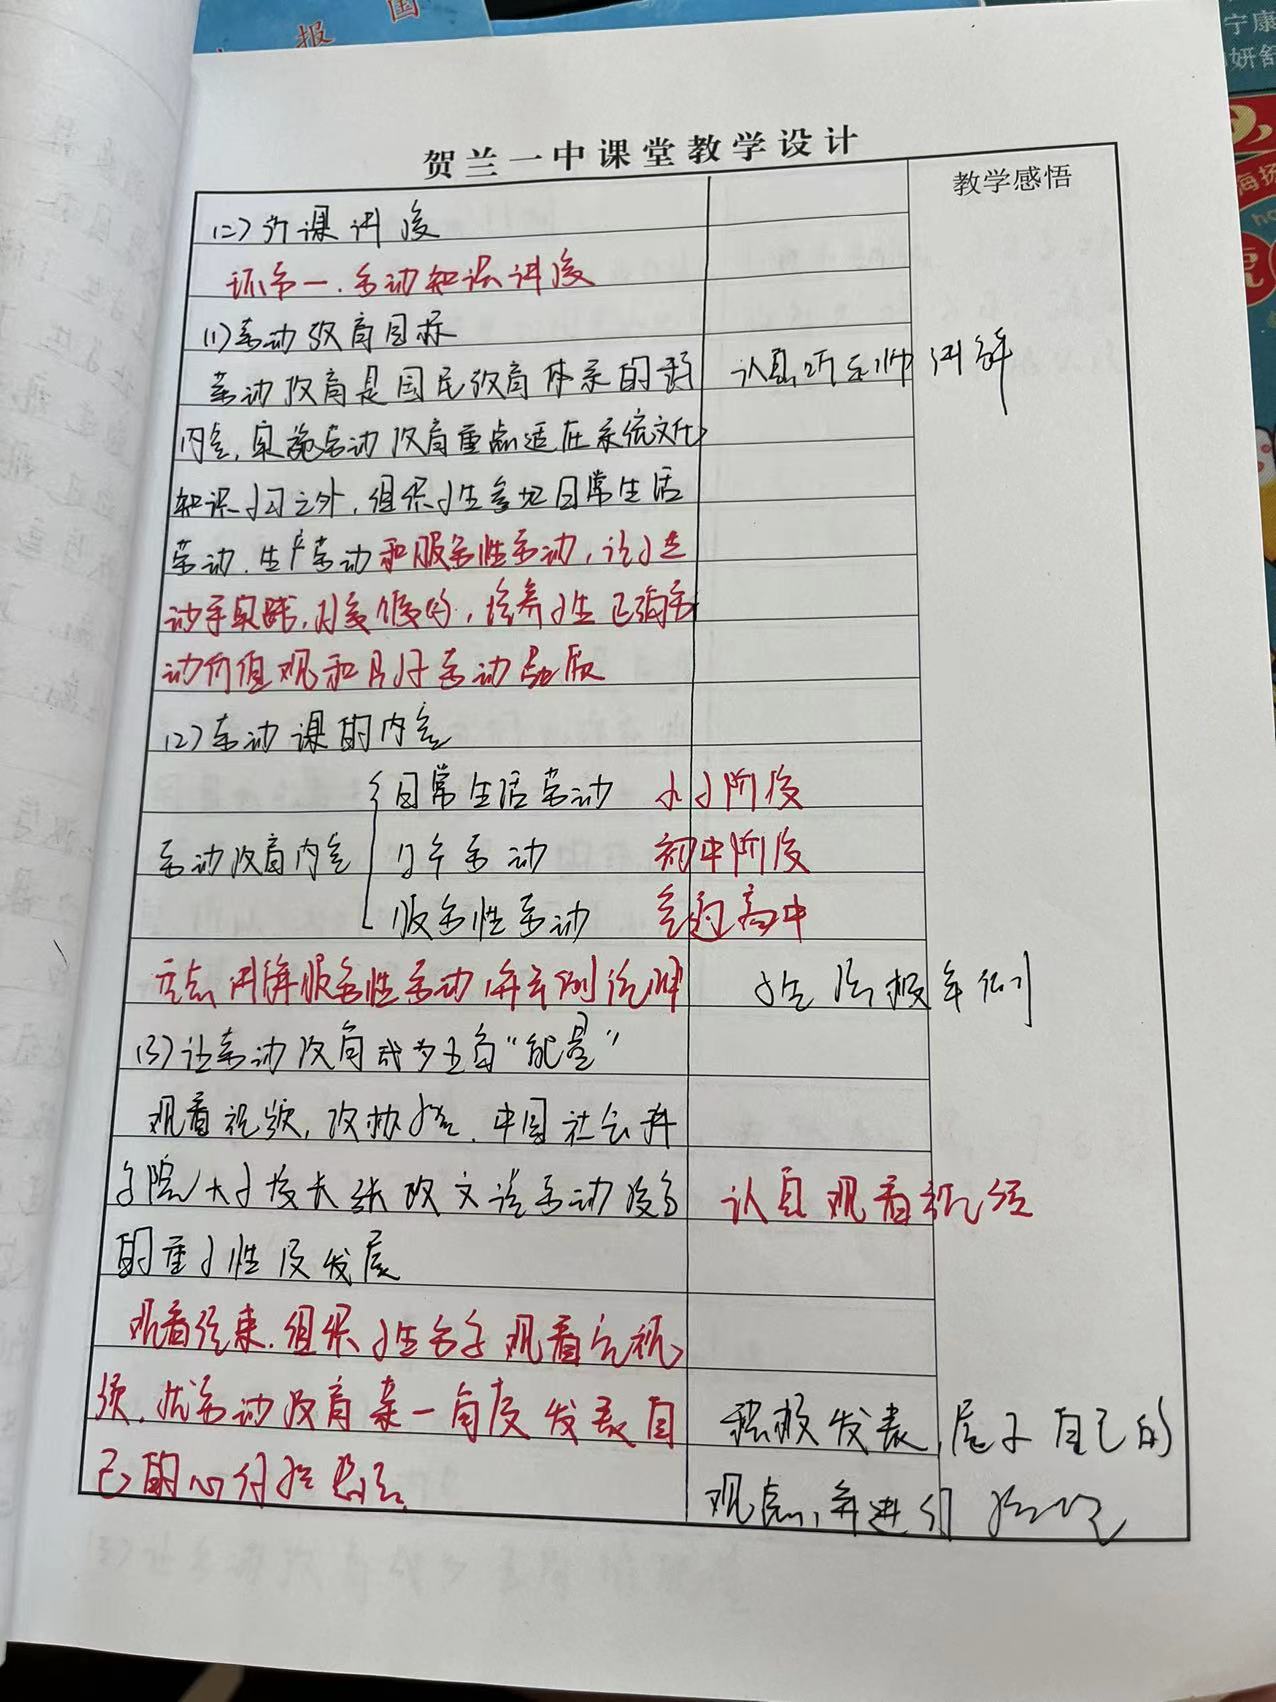 报国
宁康
妍舒
海扬
贺兰一中课堂教学设计
教学感悟
(二)新课讲授
环节一.劳动知识讲授
(1)劳动教育目标
劳动教育是国民教育体系的
认真听老师讲解
内容,实施劳动教育重点是在系统文化
知识学习之外,组织学生参加日常生活
劳动.生产劳动和服务性劳动,让学生
动手实践,培养学生正确劳
动价值观和良好劳动品质
(2)劳动课的内容
日常生活劳动 小学阶段
劳动教育内容 劳动 初中阶段
服务性劳动 普通高中
重点讲解服务性劳动并举例说明
学生积极举例
(3)让劳动教育成为五育“能量”
观看视频,中国社会科
学院大学校长张政文谈劳动教育
认真观看视频
的重要性及发展
观看结束.组织学生观看完视
频,就劳动教育某一角度发表自
积极发表,展示自己的
己的心得
观点,并进行